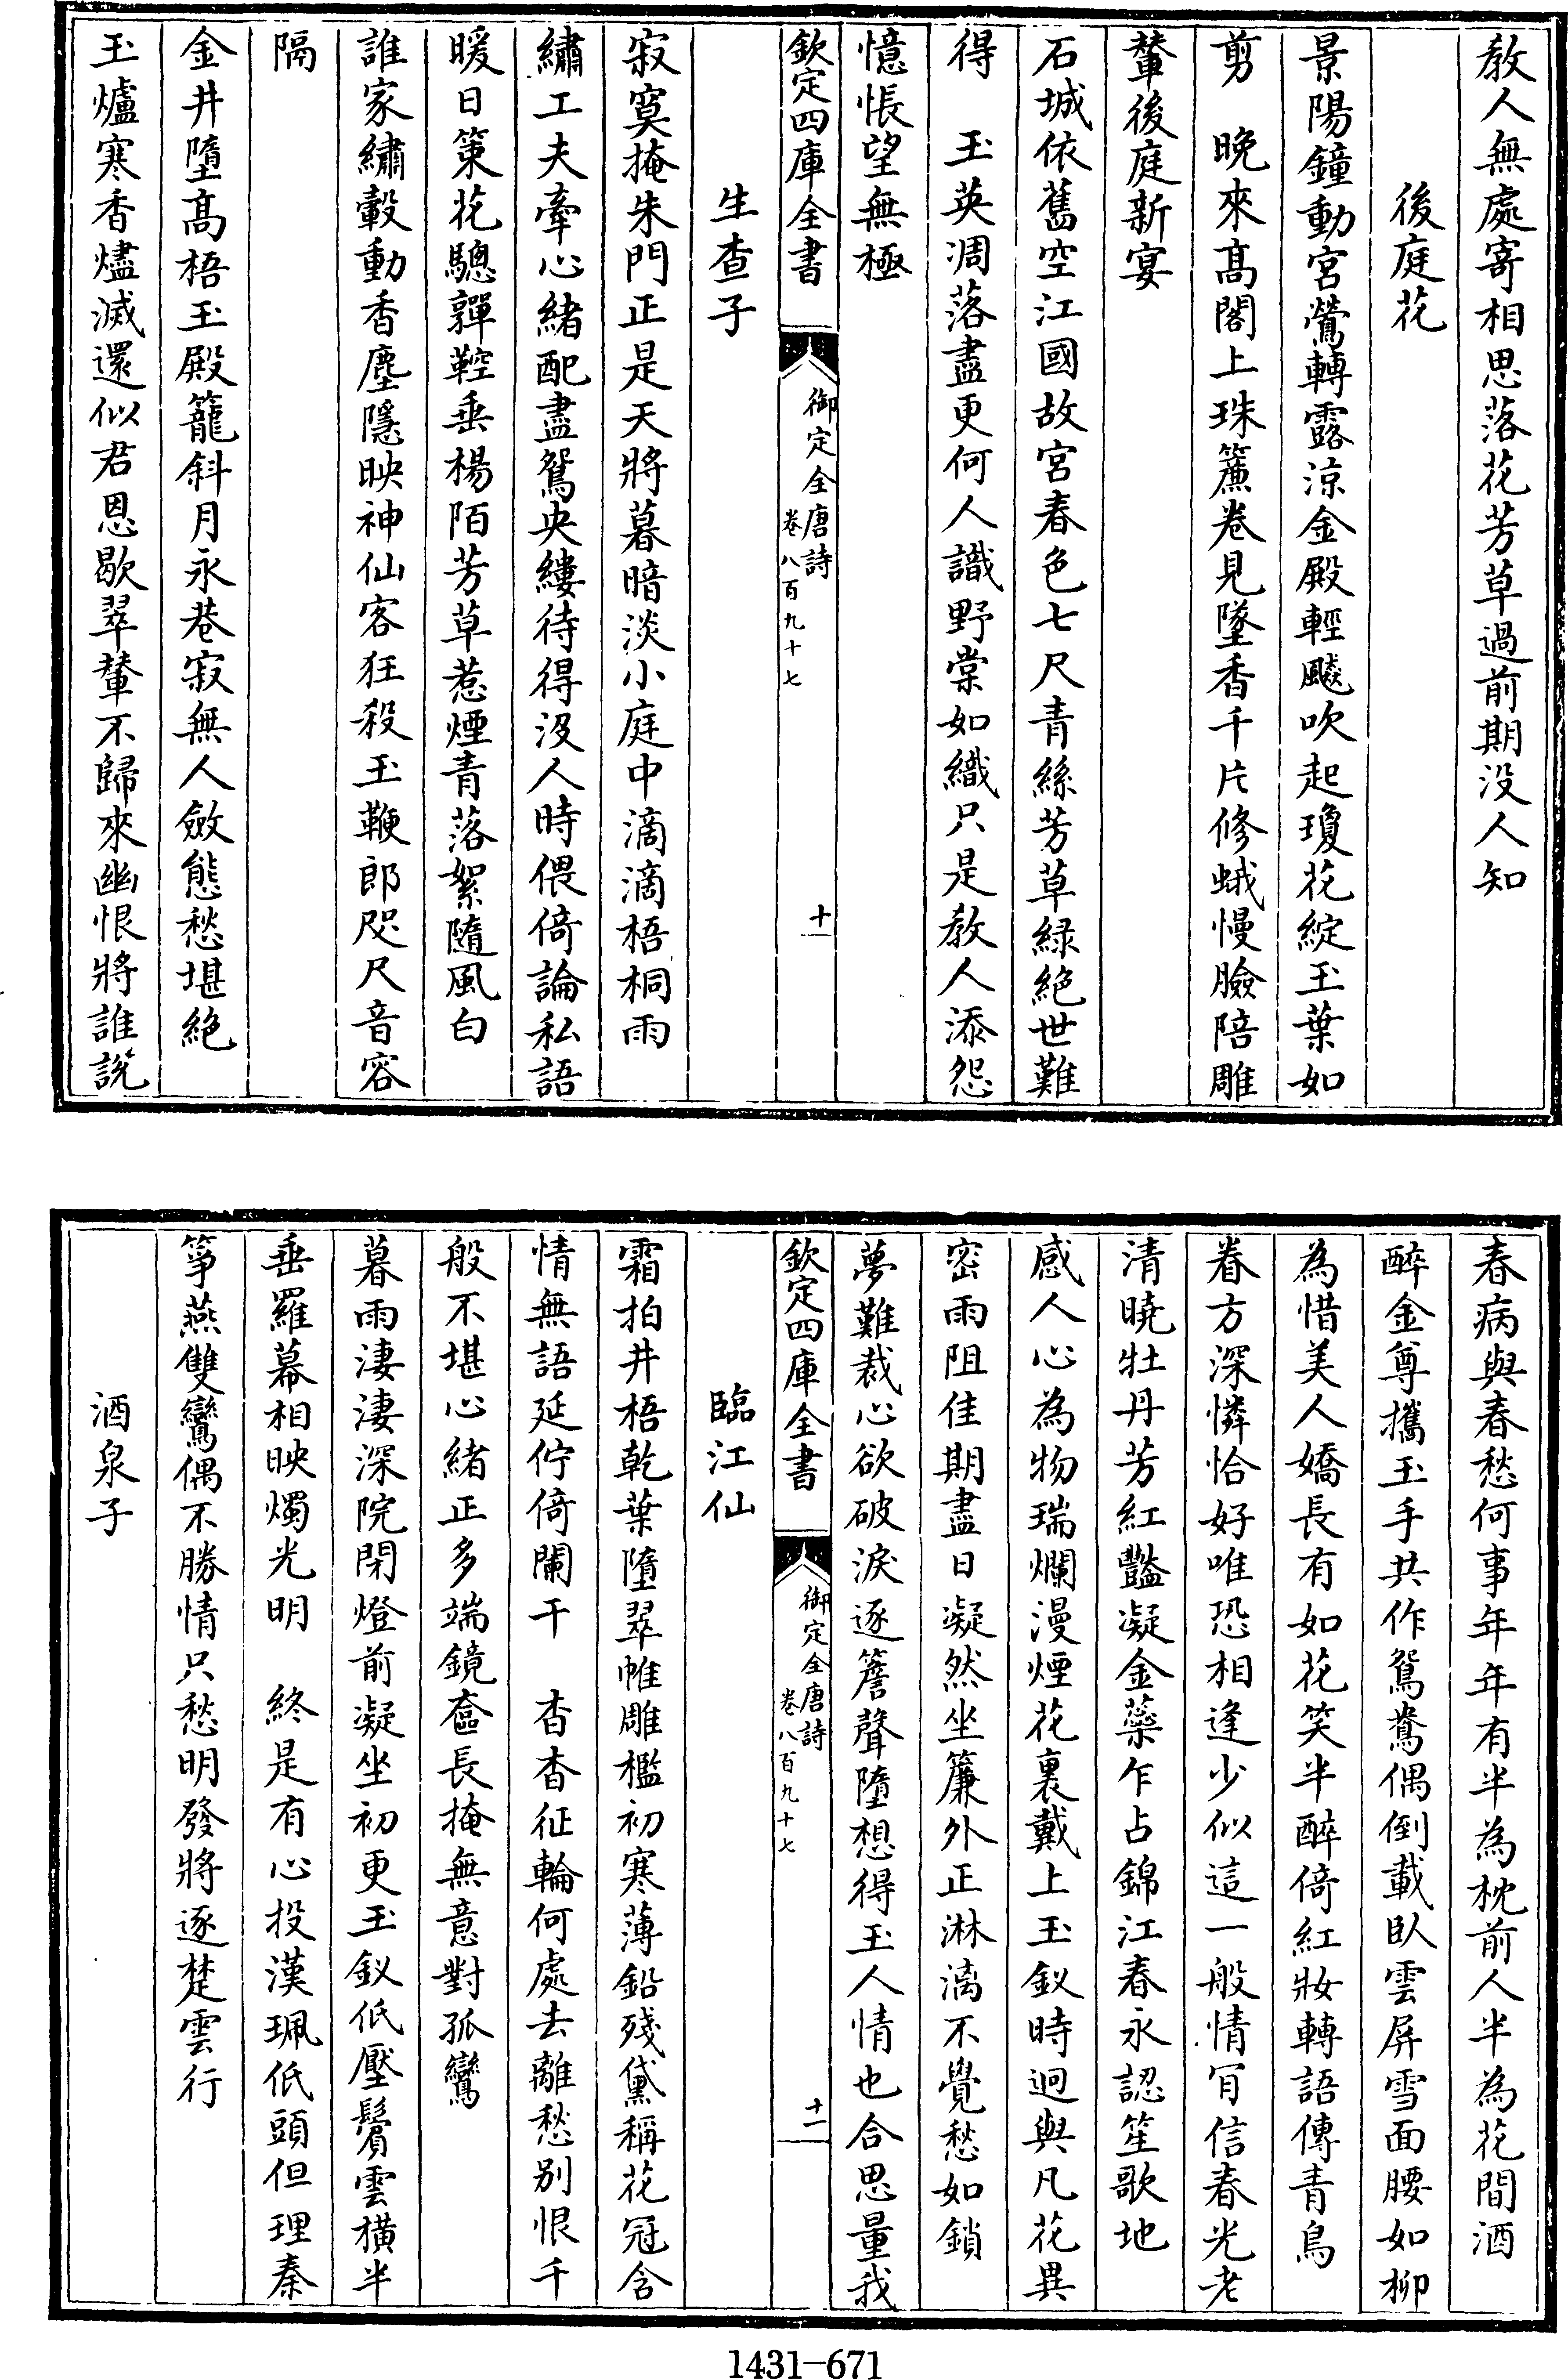 教人無處寄相思落花芳草過前期没人知
後庭花
景陽鐘動宮鶯轉露涼金殿輕飈吹起瓊花綻玉葉如
剪　晚來髙閣上珠簾卷見墜香千片修蛾慢臉陪雕
輦後庭新宴
石城依舊空江國故宮春色七尺青絲芳草緑絶世難
得　玉英凋落盡更何人識野棠如織只是教人添怨
憶悵望無極
欽定四庫全書　御定全唐詩　卷八百九十七　十
生查子
寂寞掩朱門正是天將暮暗淡小庭中滴滴梧桐雨
繡工夫牽心緒配盡鴛央縷待得没人時偎倚論私語
暖日策花驄嚲鞚垂楊陌芳草惹煙青落絮隨風白
誰家繡轂動香塵隱映神仙客狂殺玉鞭郎咫尺音容
隔
金井墮髙梧玉殿籠斜月永巷寂無人斂態愁堪絶
玉爐寒香燼滅還似君恩歇翠輦不歸來幽恨將誰説
春病與春愁何事年年有半為枕前人半為花間酒
醉金尊攜玉手共作鴛鴦偶倒載卧雲屏雪面腰如柳
為惜美人嬌長有如花笑半醉倚紅妝轉語傳青鳥
眷方深憐恰好唯恐相逢少似這一般情肎信春光老
清曉牡丹芳紅豔凝金蘂乍占錦江春永認笙歌地
感人心為物瑞爛漫煙花裏戴上玉釵時迥與凡花異
密雨阻佳期盡日凝然坐簾外正淋漓不覺愁如鎖
夢難裁心欲破淚逐簷聲墮想得玉人情也合思量我
欽定四庫全書　御定全唐詩　卷八百九十七　十一
臨江仙
霜拍井梧乾葉墮翠帷雕檻初寒薄鉛殘黛稱花冠含
情無語延佇倚闌干　杳杳征輪何處去離愁别恨千
般不堪心緒正多端鏡奩長掩無意對孤鸞
暮雨淒淒深院閉燈前凝坐初更玉釵低壓鬢雲橫半
垂羅幕相映燭光明　終是有心投漢珮低頭但理秦
箏燕雙鸞偶不勝情只愁明發將逐楚雲行
酒泉子
1431-671